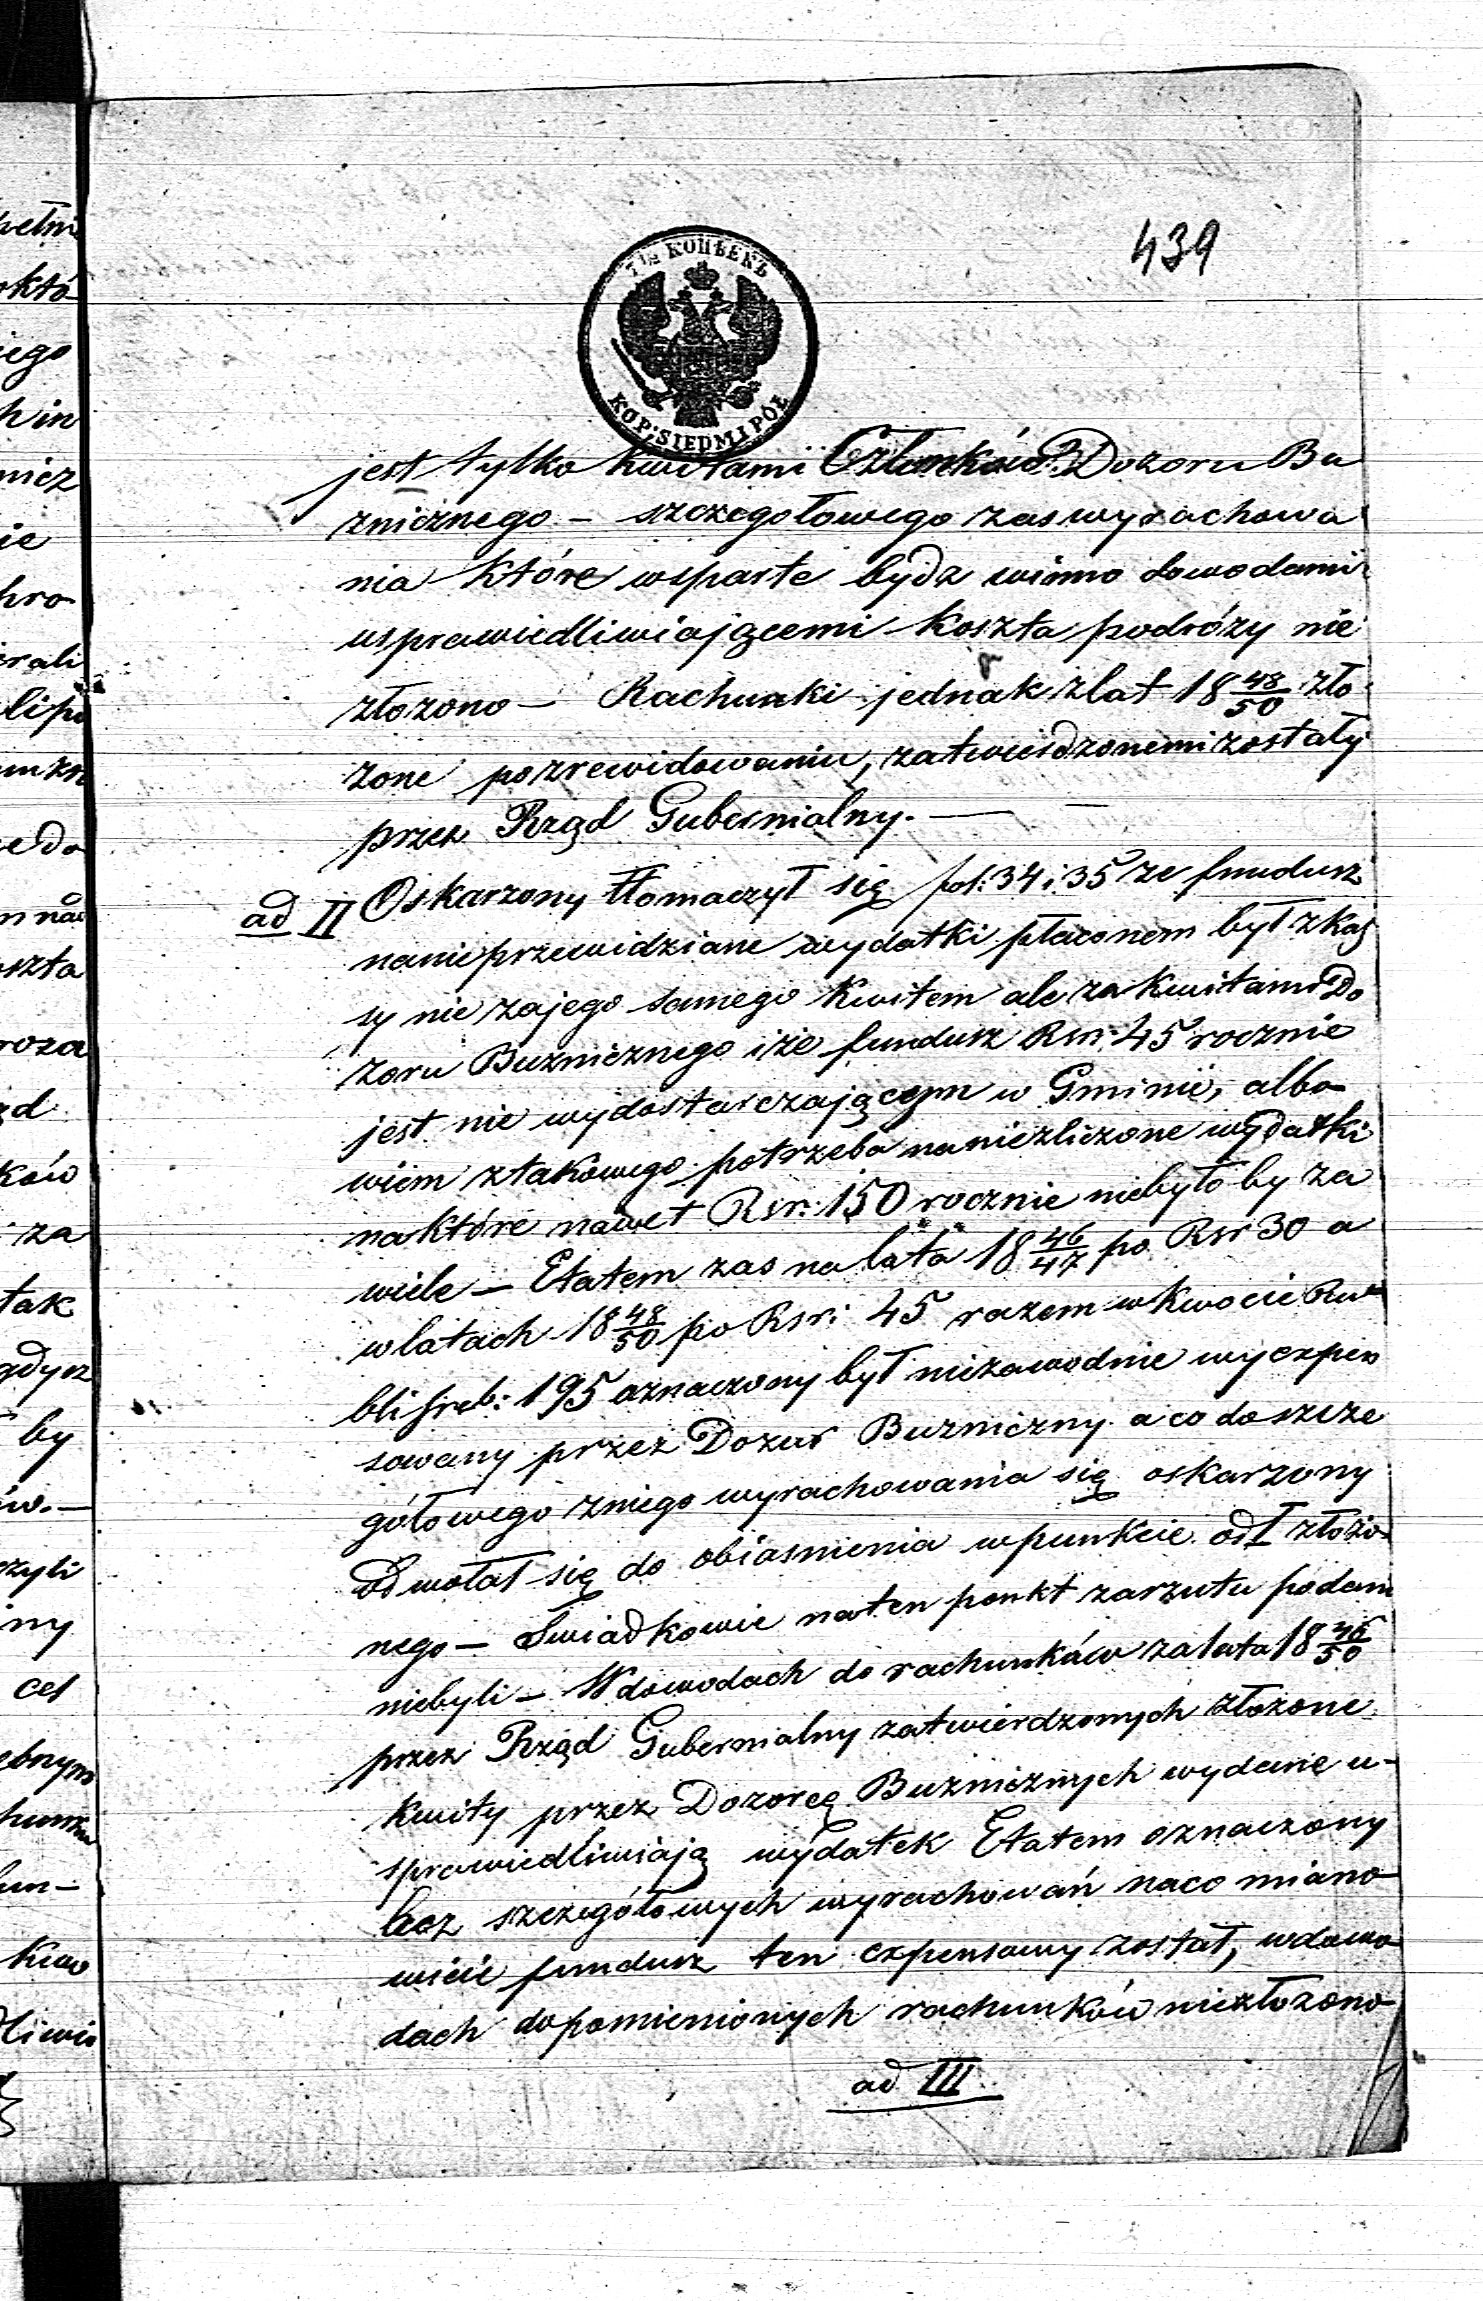 439
7½ КОПѢЕКЪ
KOP: SIEDM I PÓŁ
jest tylko kwitami Członków Dozoru Bu
znicznego – szczegołowego zas wyrachowa
nia które wsparte bydz winno dowodami
usprawiedliwiającemi koszta podróży nie
złozono – Rachunki jednak z lat 18 48/50 zło
zone po zrewidowaniu, zatwierdzonemi zostały
przez Rząd Gubernialny. —
ad II Oskarzony tłomaczył się fol: 34 i 35 ze fundusz
na nieprzewidziane wydatki płaconem był z kas
sy nie za jego samego kwitem ale za kwitami Do
zoru Buznicznego i że fundusz Rsr: 45 rocznie
jest nie wydostarczającym w Gminie, albo
wiem z takowego potrzeba na niezliczone wydatki
na które nawet Rsr: 150 rocznie niebyło by za
wiele – Etatem zas na lata 18 46/47 po Rsr 30 a
w latach 18 48/50 po Rsr: 45 razem w kwocie Ru
bli sreb: 195 oznaczony był niezawodnie wyexpen
sowany przez Dozur Buzniczny a co do szcze
gółowego z niego wyrachowania się oskarzony
odwołał się do obiasnienia w punkcie ad I złożo
nego – Swiadkowie na ten punkt zarzutu podani
niebyli – W dowodach do rachunków za lata 18 46/50
przez Rząd Gubernialny zatwierdzonych złozone
kwity przez Dozorcę Buznicznych wydane u-
sprawiedliwiają wydatek Etatem oznaczony
lecz szczegółowych wyrachowań na co miano
wicie fundusz ten expensowy został, w dowo
dach do pomienionych rachunków niezłozono
ad III